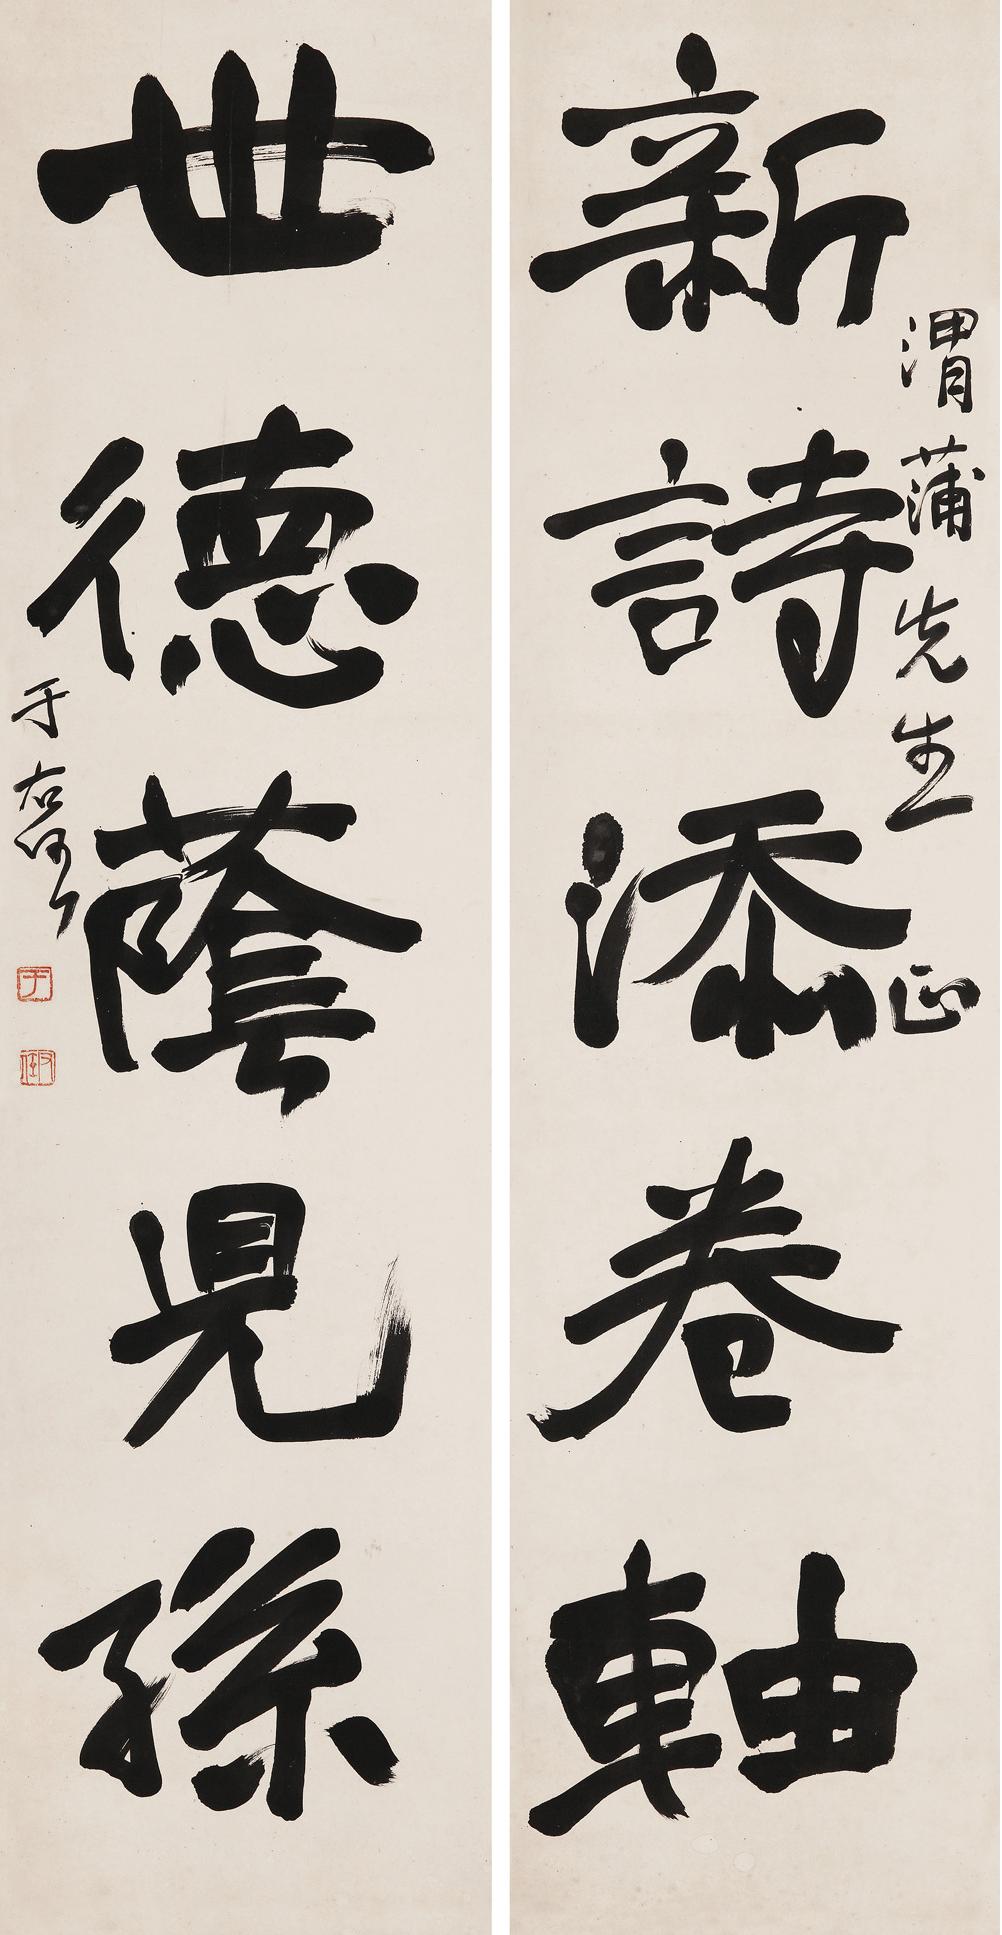 新詩添卷軸
渭蒲先生正
世德蔭兒孫
于右任